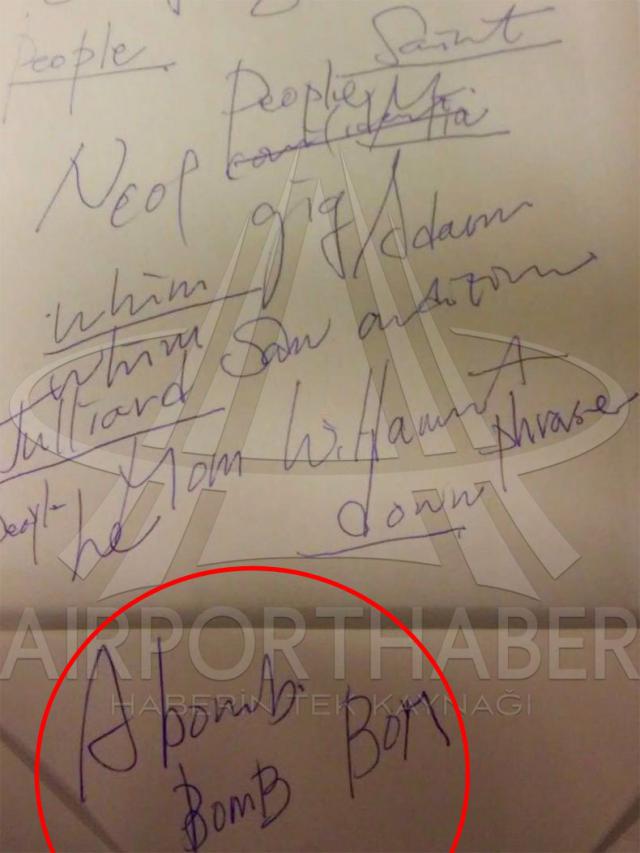 People Saint
People
Neol
gig Adam
whim
whim San
Julliard
Mom William A
people he down phrase
AIRPORTHABER
HABERİN TEK KAYNAĞI
A bomb
BOMB BOM